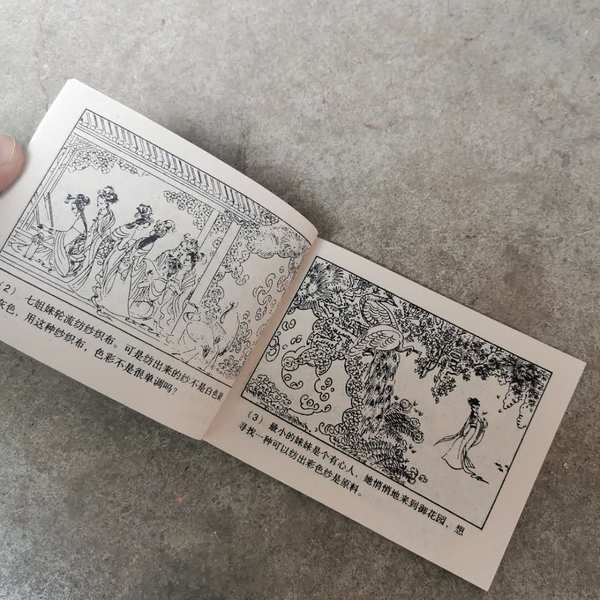 （2） 七姐妹轮流纺纱织布。可是纺出来的纱不是白色就
灰色，用这种纱织布，色彩不是很单调吗？
（3） 最小的妹妹是个有心人，她悄悄地来到御花园，想
寻找一种可以纺出彩色纱是原料。